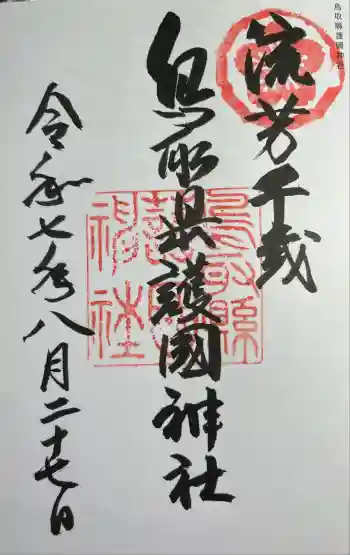 鳥取縣護國神社
流芳千載
鳥取県護國神社
鳥取縣護國神社
令和七年八月二十七日